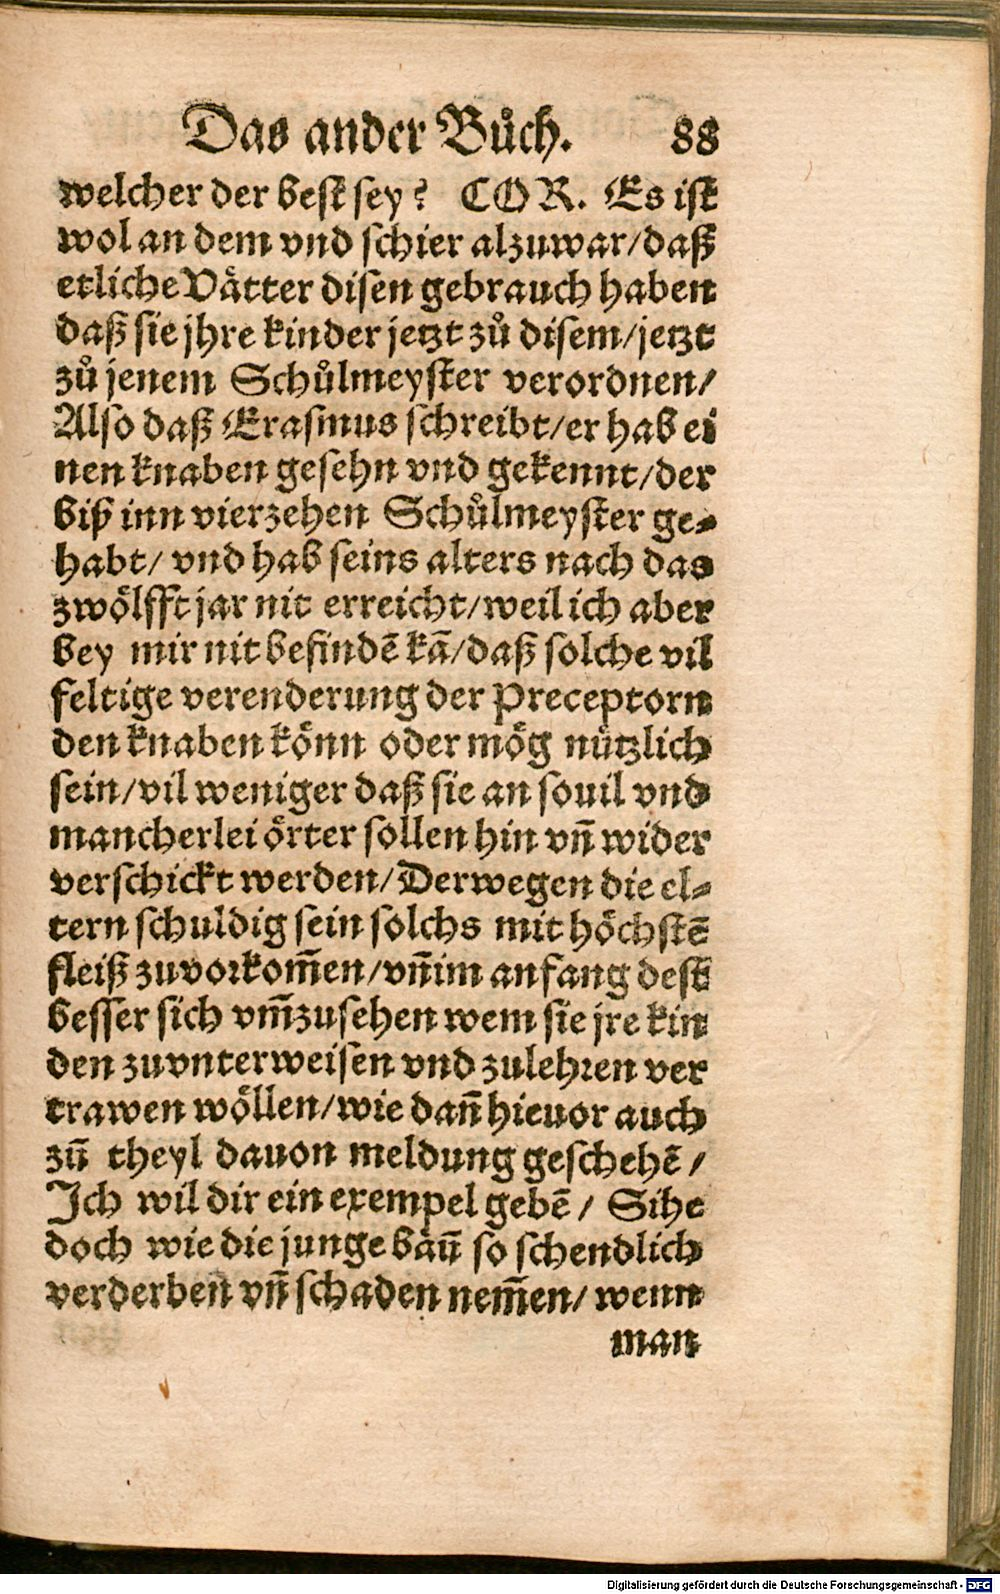 Das ander Bůch. 88
welcher der best sey? COR. Es ist
wol an dem vnd schier alzuwar/daß
etliche Vätter disen gebrauch haben
daß sie jhre kinder jetzt zů disem/jetzt
zů jenem Schůlmeyster verordnen/
Also daß Erasmus schreibt/er hab ei
nen knaben gesehn vnd gekennt/der
biß inn vierzehen Schůlmeyster ge⸗
habt/ vnd hab seins alters nach das
zwölfft jar nit erreicht/weil ich aber
bey mir nit befindē kā/daß solche vil
feltige verenderung der Preceptorn
den knaben könn oder mög nützlich
sein/vil weniger daß sie an souil vnd
mancherlei örter sollen hin vn̄ wider
verschickt werden/Derwegen die el⸗
tern schuldig sein solchs mit höchstē
fleiß zuvorkom̄en/vn̄ im anfang dest
besser sich vm̄zusehen wem sie jre kin
den zuvnterweisen vnd zulehren ver
trawen wöllen/wie dan̄ hieuor auch
zū theyl dauon meldung geschehē/
Ich wil dir ein exempel gebē/ Sihe
doch wie die junge bäū so schendlich
verderben vn̄ schaden nem̄en/ wenn
man
Digitalisierung gefördert durch die Deutsche Forschungsgemeinschaft - DFG